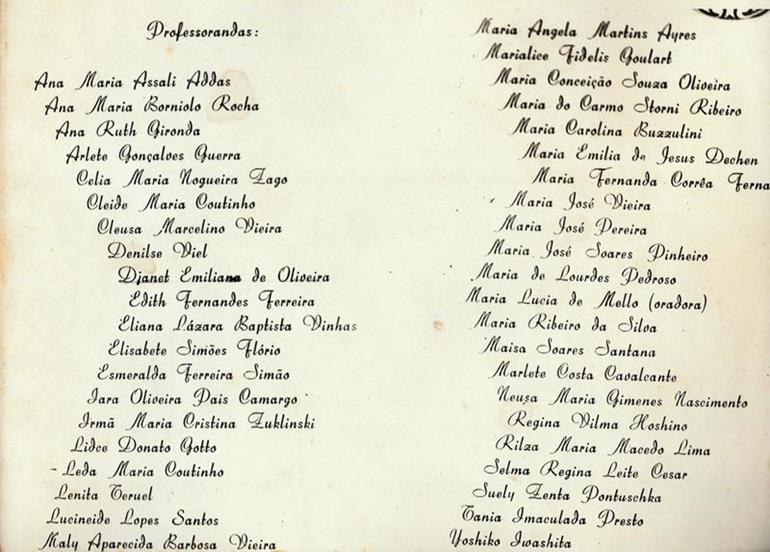 Professorandas:
Ana Maria Assali Addas
Ana Maria Borniolo Rocha
Ana Ruth Gironda
Arlete Gonçalves Guerra
Celia Maria Nogueira Zago
Cleide Maria Coutinho
Cleusa Marcelino Vieira
Denilse Viel
Djanet Emiliana de Oliveira
Edith Fernandes Ferreira
Eliana Lázara Baptista Vinhas
Elisabete Simões Flório
Esmeralda Ferreira Simão
Iara Oliveira Pais Camargo
Irmã Maria Cristina Zuklinski
Lidce Donato Gotto
- Leda Maria Coutinho
Lenita Teruel
Lucineide Lopes Santos
Maly Aparecida Barbosa Vieira
Maria Angela Martins Ayres
Marialice Fidelis Goulart
Maria Conceição Souza Oliveira
Maria do Carmo Storni Ribeiro
Maria Carolina Buzzulini
Maria Emilia de Jesus Dechen
Maria Fernanda Corrêa Ferna
Maria José Vieira
Maria José Pereira
Maria José Soares Pinheiro
Maria de Lourdes Pedroso
Maria Lucia de Mello (oradora)
Maria Ribeiro da Silva
Maisa Soares Santana
Marlete Costa Cavalcante
Neusa Maria Gimenes Nascimento
Regina Vilma Hoshino
Rilza Maria Macedo Lima
Selma Regina Leite Cesar
Suely Zenta Pontuschka
Tania Imaculada Presto
Yoshiko Iwashita